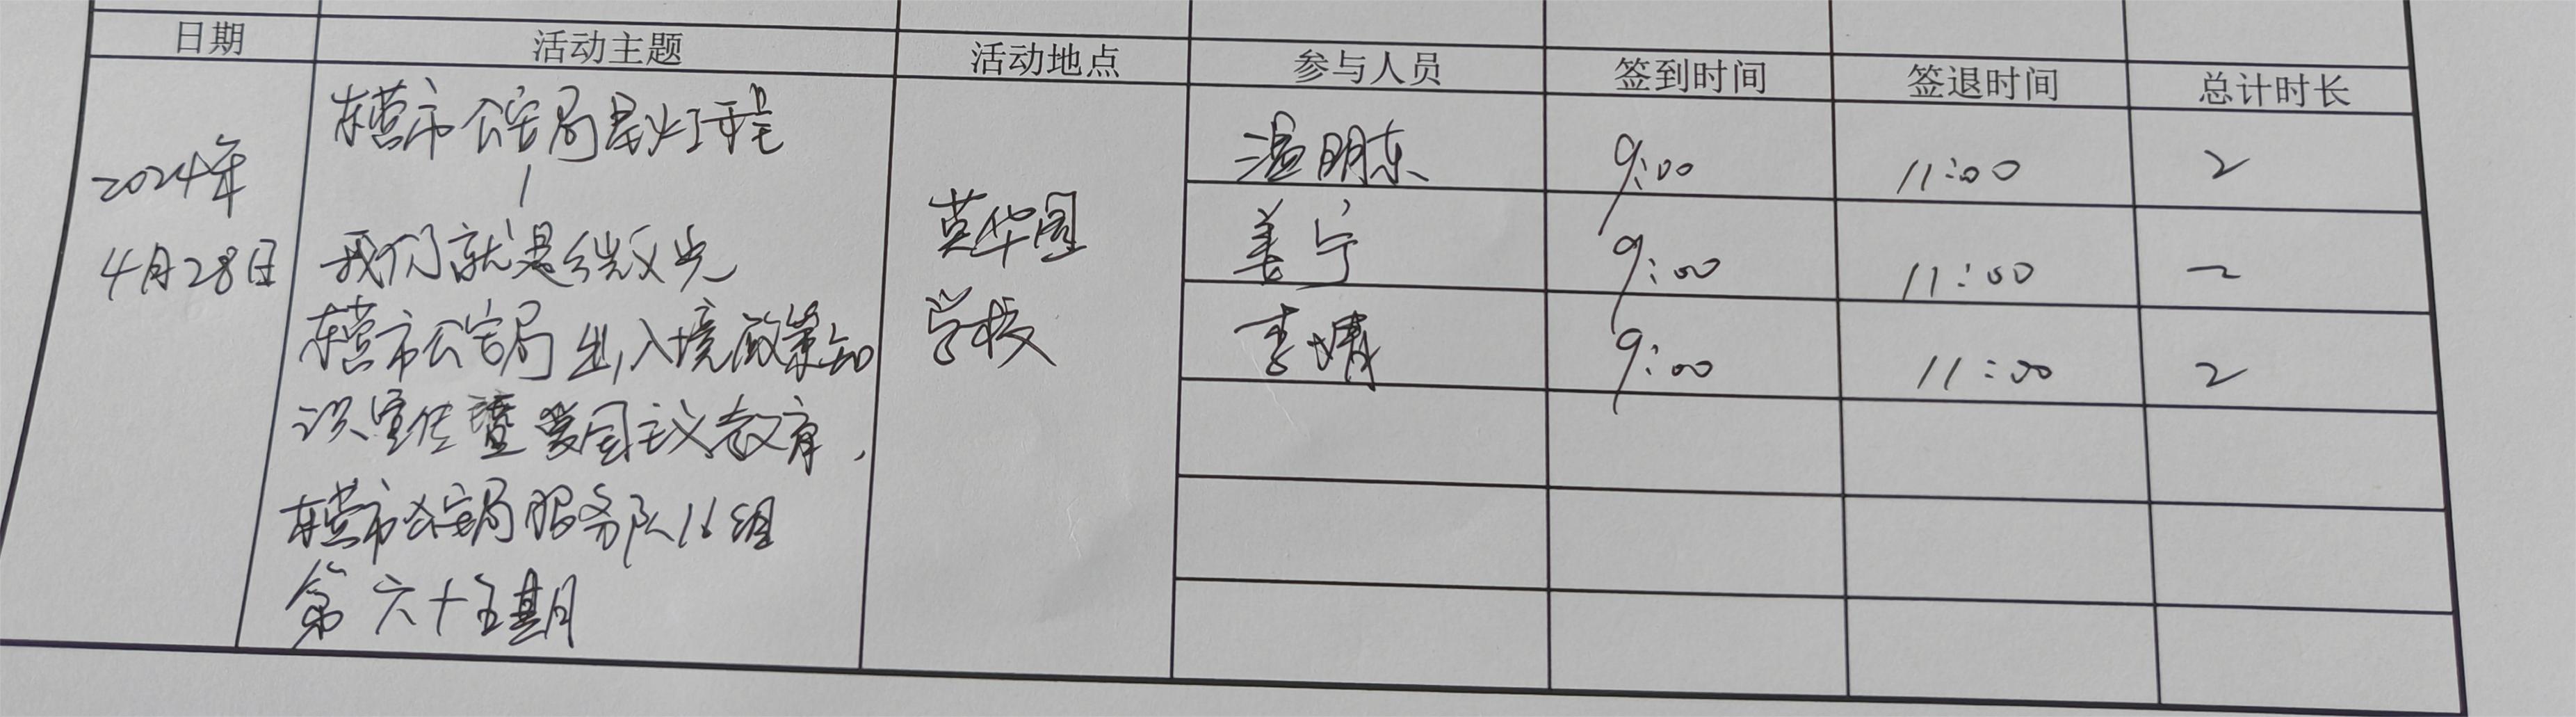 日期 活动主题 活动地点 参与人员 签到时间 签退时间 总计时长
2024年
4月28日
东营市公安局星火工程
我们就是继义光
东营市公安局出入境政策知
识宣传暨爱国主义教育,
东营市公安局服务队16组
第六十五期
英华园
学校
温明东 9:00 11:00 2
姜宁 9:00 11:00 2
李婧 9:00 11:00 2